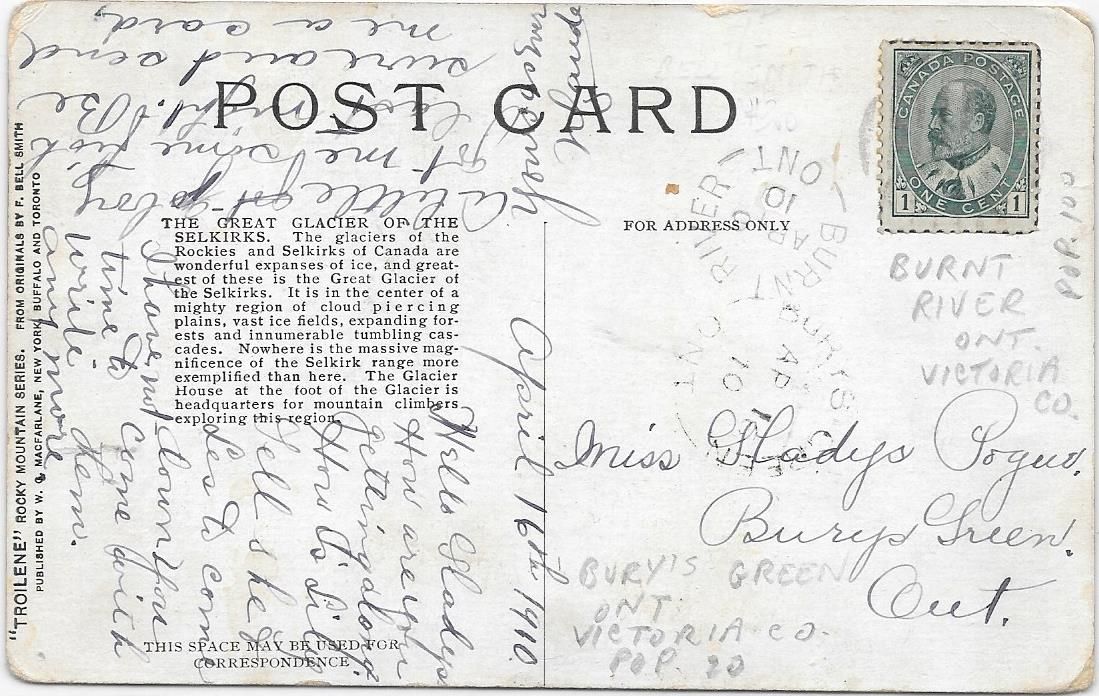 POST CARD
CANADA POSTAGE
ONE CENT
1 1
"TROILENE" ROCKY MOUNTAIN SERIES. FROM ORIGINALS BY F. BELL SMITH
PUBLISHED BY W. G. MACFARLANE, NEW YORK, BUFFALO AND TORONTO
THE GREAT GLACIER OF THE
SELKIRKS. The glaciers of the
Rockies and Selkirks of Canada are
wonderful expanses of ice, and great-
est of these is the Great Glacier of
the Selkirks. It is in the center of a
mighty region of cloud piercing
plains, vast ice fields, expanding for-
ests and innumerable tumbling cas-
cades. Nowhere is the massive mag-
nificence of the Selkirk range more
exemplified than here. The Glacier
House at the foot of the Glacier is
headquarters for mountain climbers
exploring this region.
THIS SPACE MAY BE USED FOR
CORRESPONDENCE
FOR ADDRESS ONLY
April 16th 1910.
Well Gladys
How are you
getting along.
How is
Tell she
has to come
down
I have not
time to
write
any more
come with
them.
Be
sure and send
me a card,
BURNT RIVER
ONT
AP
10
BURYS GREEN
ONT
AP
10
Miss Gladys Pogue.
Burys Green.
Ont.
BURNT
RIVER
ONT.
VICTORIA
CO.
POP. 100
BURY'S GREEN
ONT.
VICTORIA CO.
POP. 20